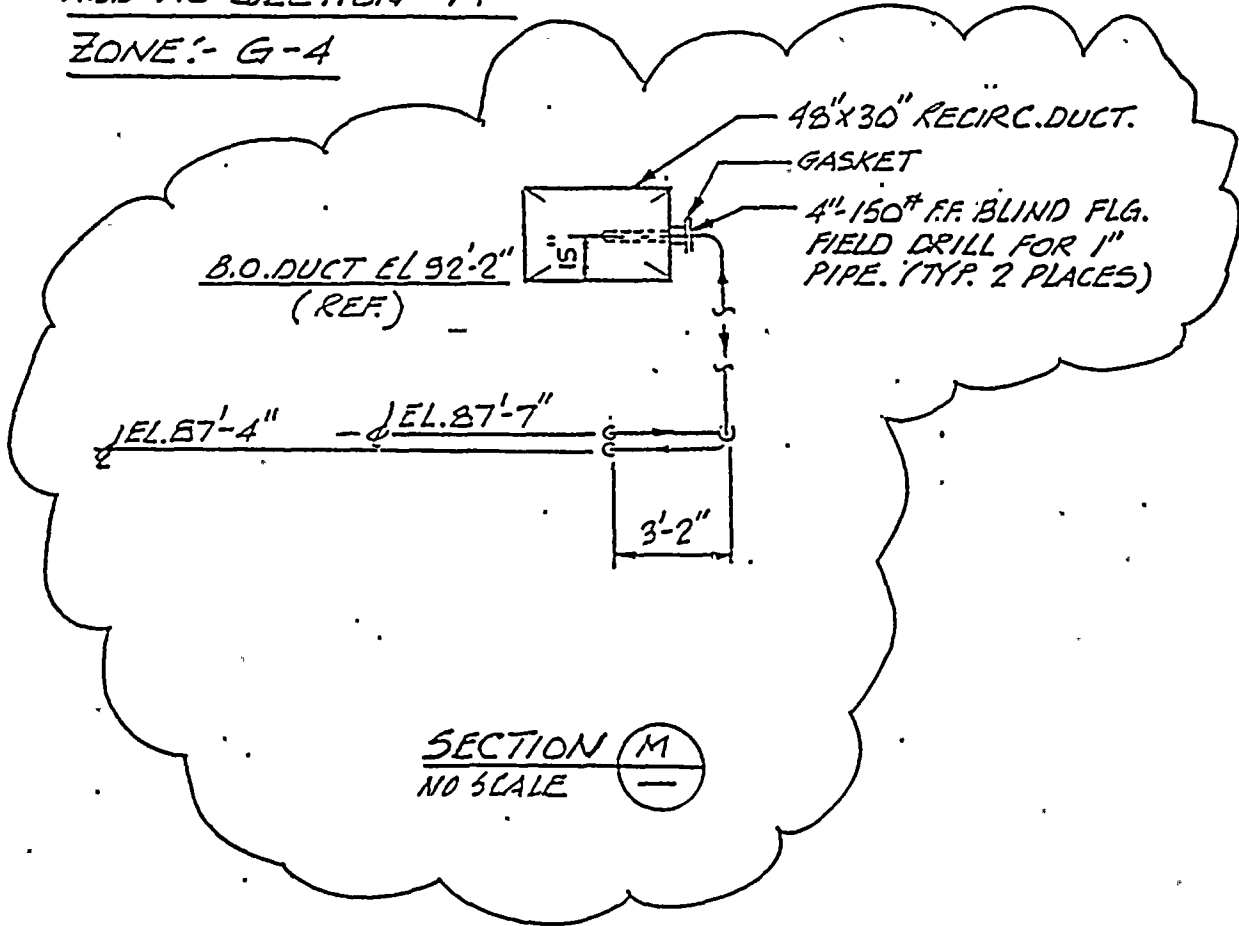 ZONE:- G-4
48"X30" RECIRC. DUCT.
GASKET
4"-150# F.F. BLIND FLG.
FIELD DRILL FOR 1"
PIPE. (TYP. 2 PLACES)
15"
B.O. DUCT EL 92'-2"
(REF.)
EL. 87'-4"
EL. 87'-7"
3'-2"
SECTION M
NO SCALE —